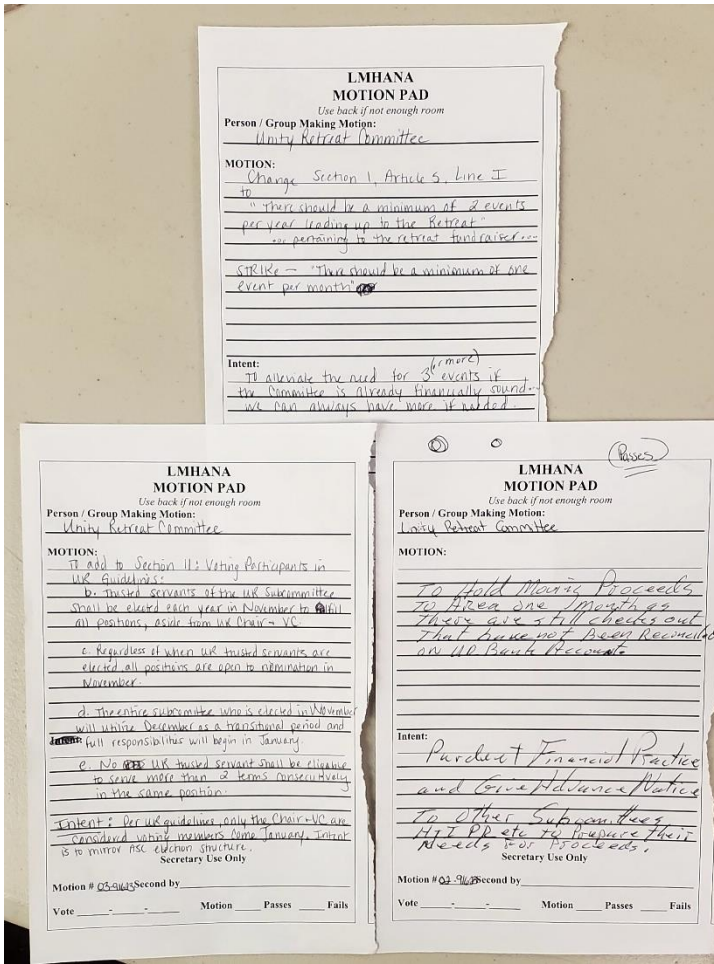 LMHANA
MOTION PAD
Use back if not enough room
Person / Group Making Motion:
Unity Retreat Committee
MOTION:
Change Section 1, Article 5, Line I
to
"There should be a minimum of 2 events
per year leading up to the Retreat"
... pertaining to the retreat fundraiser...
STRIKE - "There should be a minimum of one
event per month"
Intent:
(or more)
To alleviate the need for 3 events if
the Committee is already financially sound...
We can always have more if needed.
LMHANA
MOTION PAD
Use back if not enough room
Person / Group Making Motion:
Unity Retreat Committee
MOTION:
To add to Section 11: Voting Participants in
UR Guidelines:
b. Trusted servants of the UR Subcommittee
shall be elected each year in November to fulfill
all positions, aside from UR Chair + VC.
c. Regardless of when UR trusted servants are
elected all positions are open to nomination in
November.
d. The entire subcomittee who is elected in November
will utilize December as a transitional period and
Intent: full responsibilites will begin in January.
e. No UR trusted servant shall be eligable
to serve more than 2 terms consecutively
in the same position.
Intent: Per UR guidelines, only the Chair + VC are
considered voting members come January. Intent
is to mirror ASC election structure.
Secretary Use Only
Motion # 03-91623 Second by
Vote - - Motion Passes Fails
Passes
LMHANA
MOTION PAD
Use back if not enough room
Person / Group Making Motion:
Unity Retreat Committee
MOTION:
To Hold Moving Proceeds
To Area one month as
There are still checks out
That have not Been Reconciled
on UR Bank Account.
Intent:
Purdent Financial Practice
and Give Advance Notice
To Other Subcomittees
H+I PR etc to Prepare their
Needs for Proceeds.
Secretary Use Only
Motion # 02-91623 Second by
Vote - - Motion Passes Fails